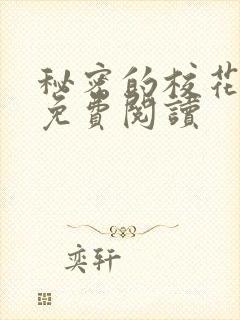 秘密的校花
免費閱讀
奕轩